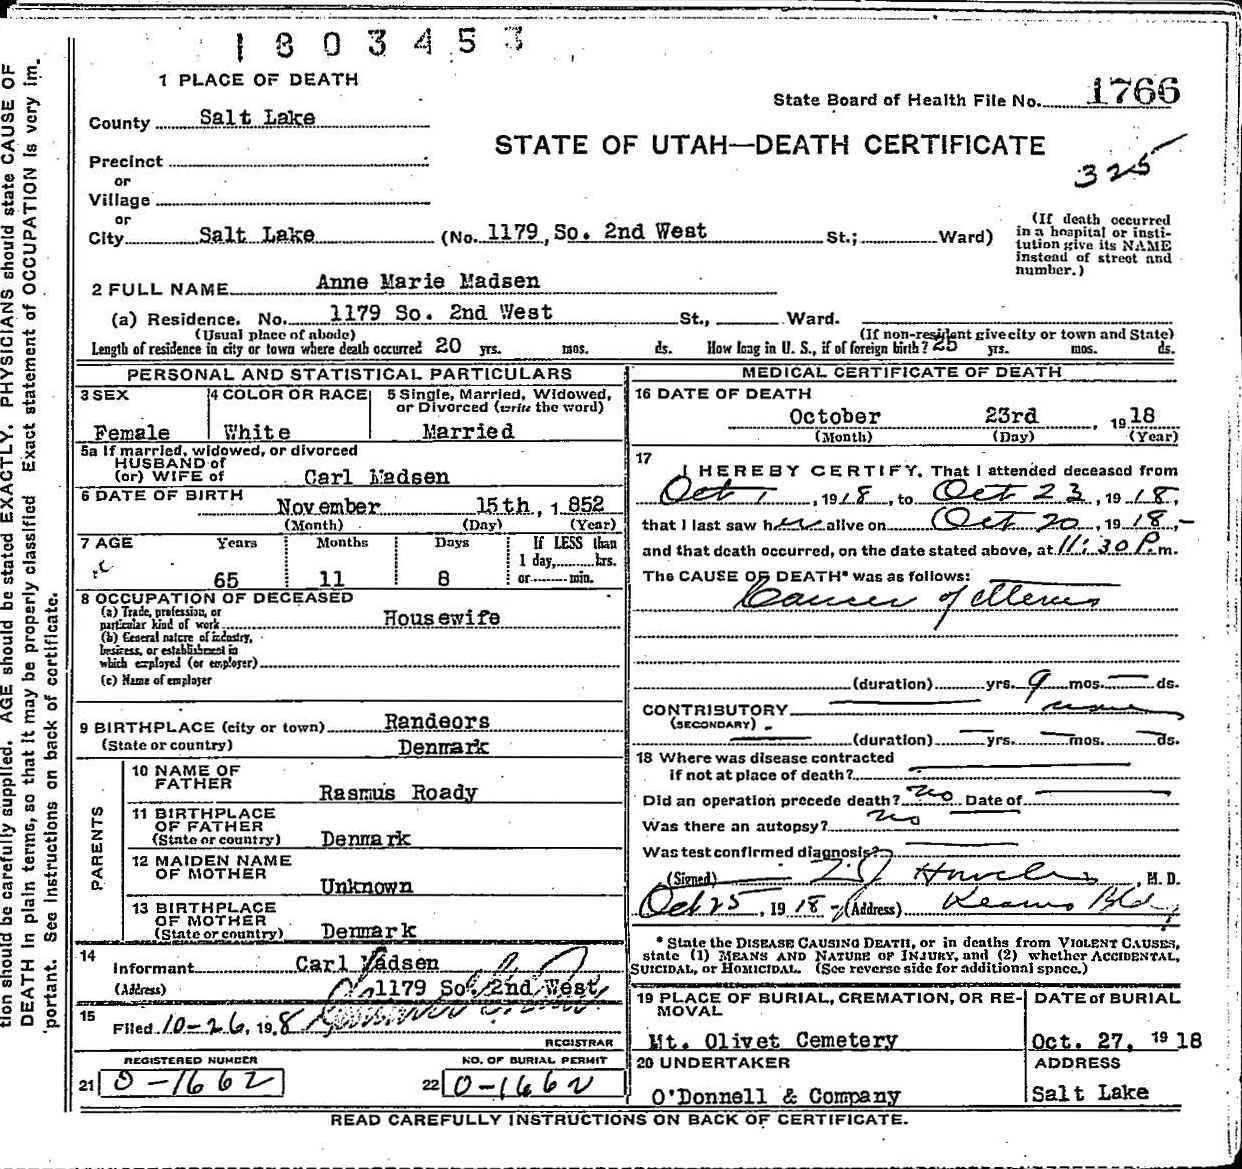 1803453
1 PLACE OF DEATH
State Board of Health File No. 1766
County Salt Lake
STATE OF UTAH—DEATH CERTIFICATE
325
Precinct
or
Village
or
City Salt Lake (No. 1179, So. 2nd West St.; Ward)
(If death occurred
in a hospital or insti-
tution give its NAME
instead of street and
number.)
2 FULL NAME Anne Marie Madsen
(a) Residence. No. 1179 So. 2nd West St., Ward.
(Usual place of abode) (If non-resident give city or town and State)
Length of residence in city or town where death occurred 20 yrs. mos. ds. How long in U. S., if of foreign birth? 25 yrs. mos. ds.
PERSONAL AND STATISTICAL PARTICULARS
3 SEX
Female
4 COLOR OR RACE
White
5 Single, Married, Widowed,
or Divorced (write the word)
Married
5a If married, widowed, or divorced
HUSBAND of
(or) WIFE of Carl Madsen
6 DATE OF BIRTH
November 15th, 1852
(Month) (Day) (Year)
7 AGE Years Months Days If LESS than
1 day, hrs.
65 11 8 or min.
8 OCCUPATION OF DECEASED
(a) Trade, profession, or
particular kind of work Housewife
(b) General nature of industry,
business, or establishment in
which employed (or employer)
(c) Name of employer
9 BIRTHPLACE (city or town) Randeors
(State or country) Denmark
PARENTS
10 NAME OF
FATHER
Rasmus Roady
11 BIRTHPLACE
OF FATHER
(State or country) Denmark
12 MAIDEN NAME
OF MOTHER
Unknown
13 BIRTHPLACE
OF MOTHER
(State or country) Denmark
14
Informant Carl Madsen
(Address) 1179 So. 2nd West
15
Filed 10-26, 1918
REGISTRAR
REGISTERED NUMBER
21 0-1662
NO. OF BURIAL PERMIT
22 0-1662
MEDICAL CERTIFICATE OF DEATH
16 DATE OF DEATH
October 23rd, 1918
(Month) (Day) (Year)
17
I HEREBY CERTIFY, That I attended deceased from
Oct 1, 1918, to Oct 23, 1918,
that I last saw her alive on Oct 20, 1918,-
and that death occurred, on the date stated above, at 11:30 P.m.
The CAUSE OF DEATH* was as follows:
Cancer of Uterus
(duration) yrs. 9 mos. ds.
CONTRIBUTORY none
(SECONDARY)
(duration) yrs. mos. ds.
18 Where was disease contracted
if not at place of death?
Did an operation precede death? No Date of
Was there an autopsy? No
Was test confirmed diagnosis?
(Signed) M. D.
Oct 25, 1918 - (Address) Kearns Bldg
* State the DISEASE CAUSING DEATH, or in deaths from VIOLENT CAUSES,
state (1) MEANS AND NATURE OF INJURY, and (2) whether ACCIDENTAL,
SUICIDAL, or HOMICIDAL. (See reverse side for additional space.)
19 PLACE OF BURIAL, CREMATION, OR RE-
MOVAL
Mt. Olivet Cemetery
DATE of BURIAL
Oct. 27, 1918
20 UNDERTAKER
O'Donnell & Company
ADDRESS
Salt Lake
READ CAREFULLY INSTRUCTIONS ON BACK OF CERTIFICATE.
tion should be carefully supplied. AGE should be stated EXACTLY. PHYSICIANS should state CAUSE OF
DEATH in plain terms, so that it may be properly classified Exact statement of OCCUPATION is very im-
portant. See instructions on back of certificate.